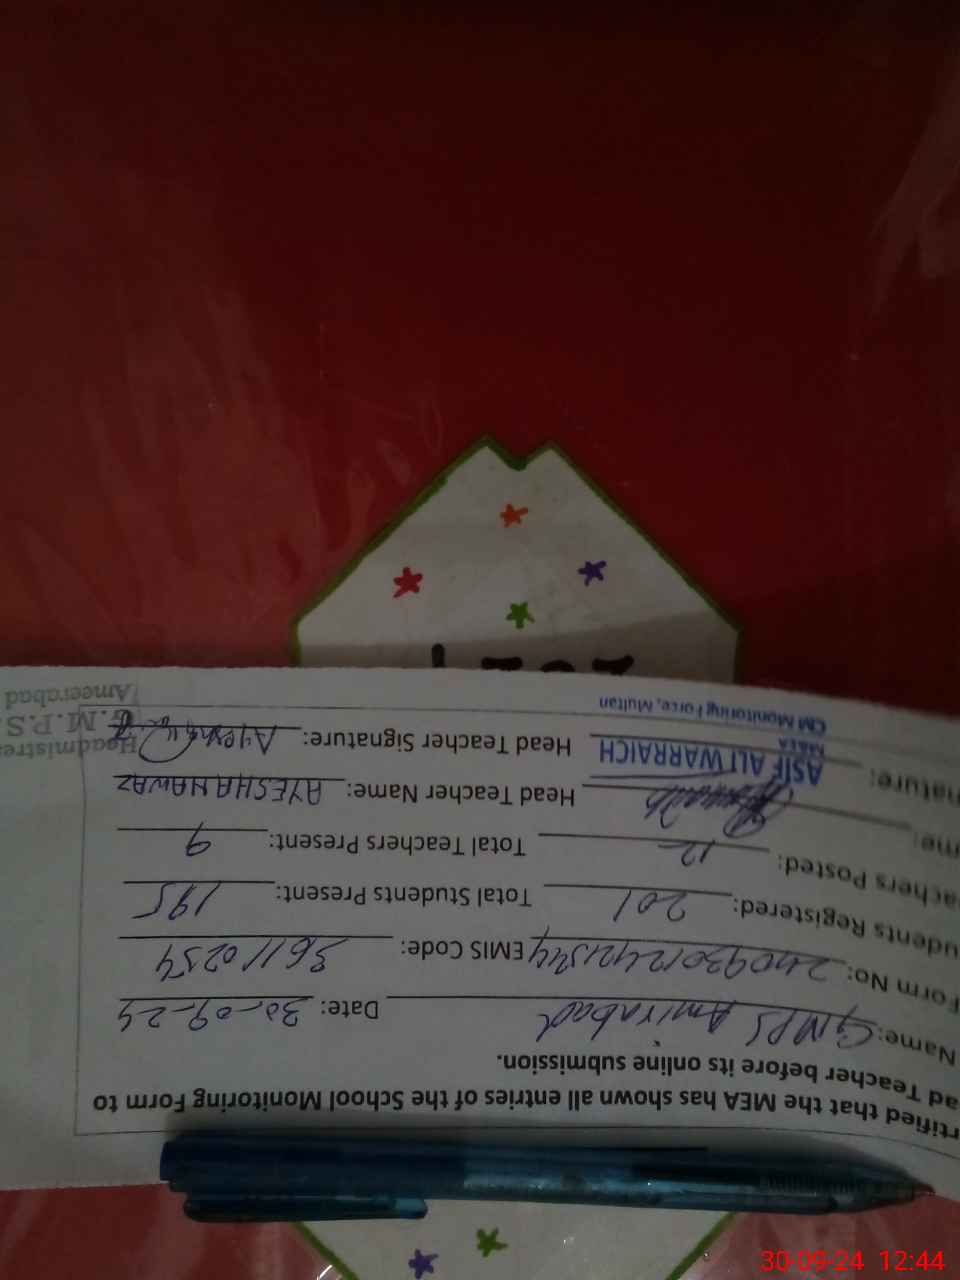 rtified that the MEA has shown all entries of the School Monitoring Form to
ad Teacher before its online submission.
Name: GMPS Amirabad Date: 30-09-24
Form No: EMIS Code: 36110254
udents Registered: 201 Total Students Present: 195
achers Posted: 12 Total Teachers Present: 9
me: Head Teacher Name: AYESHA NAWAZ
nature: ASIF ALI WARRAICH Head Teacher Signature: Ayesha
MEA
CM Monitoring Force, Multan
Headmistre
G.M.P.S.
Ameerabad
30-09-24 12:44